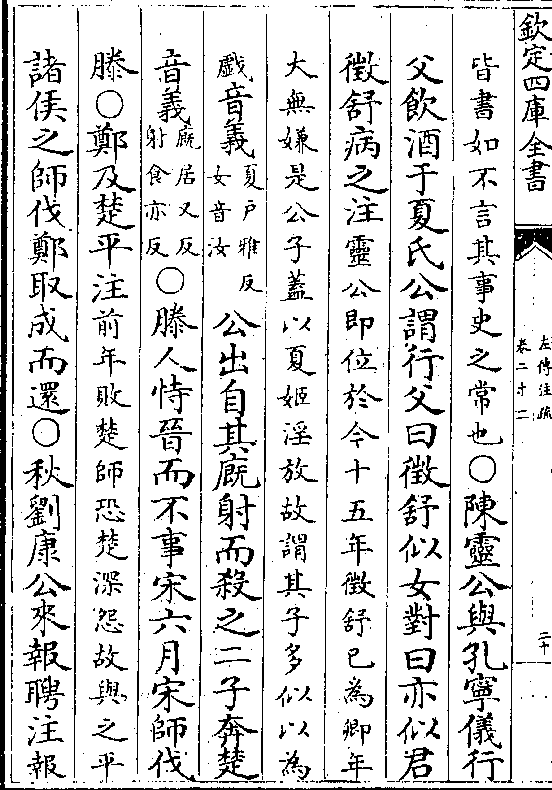 欽定四庫全書
左傳注疏
卷二十二
二十
皆書如不言其事史之常也○陳靈公與孔寧儀行
父飲酒于夏氏公謂行父曰徵舒似女對曰亦似君
徵舒病之注靈公即位於今十五年徵舒已為卿年
大無嫌是公子蓋以夏姬淫放故謂其子多似以為
戲音義夏戶雅反女音汝公出自其廐射而殺之二子奔楚
音義廐居又反射食亦反○滕人恃晉而不事宋六月宋師伐
滕○鄭及楚平注前年敗楚師恐楚深怨故與之平
諸侯之師伐鄭取成而還○秋劉康公來報聘注報